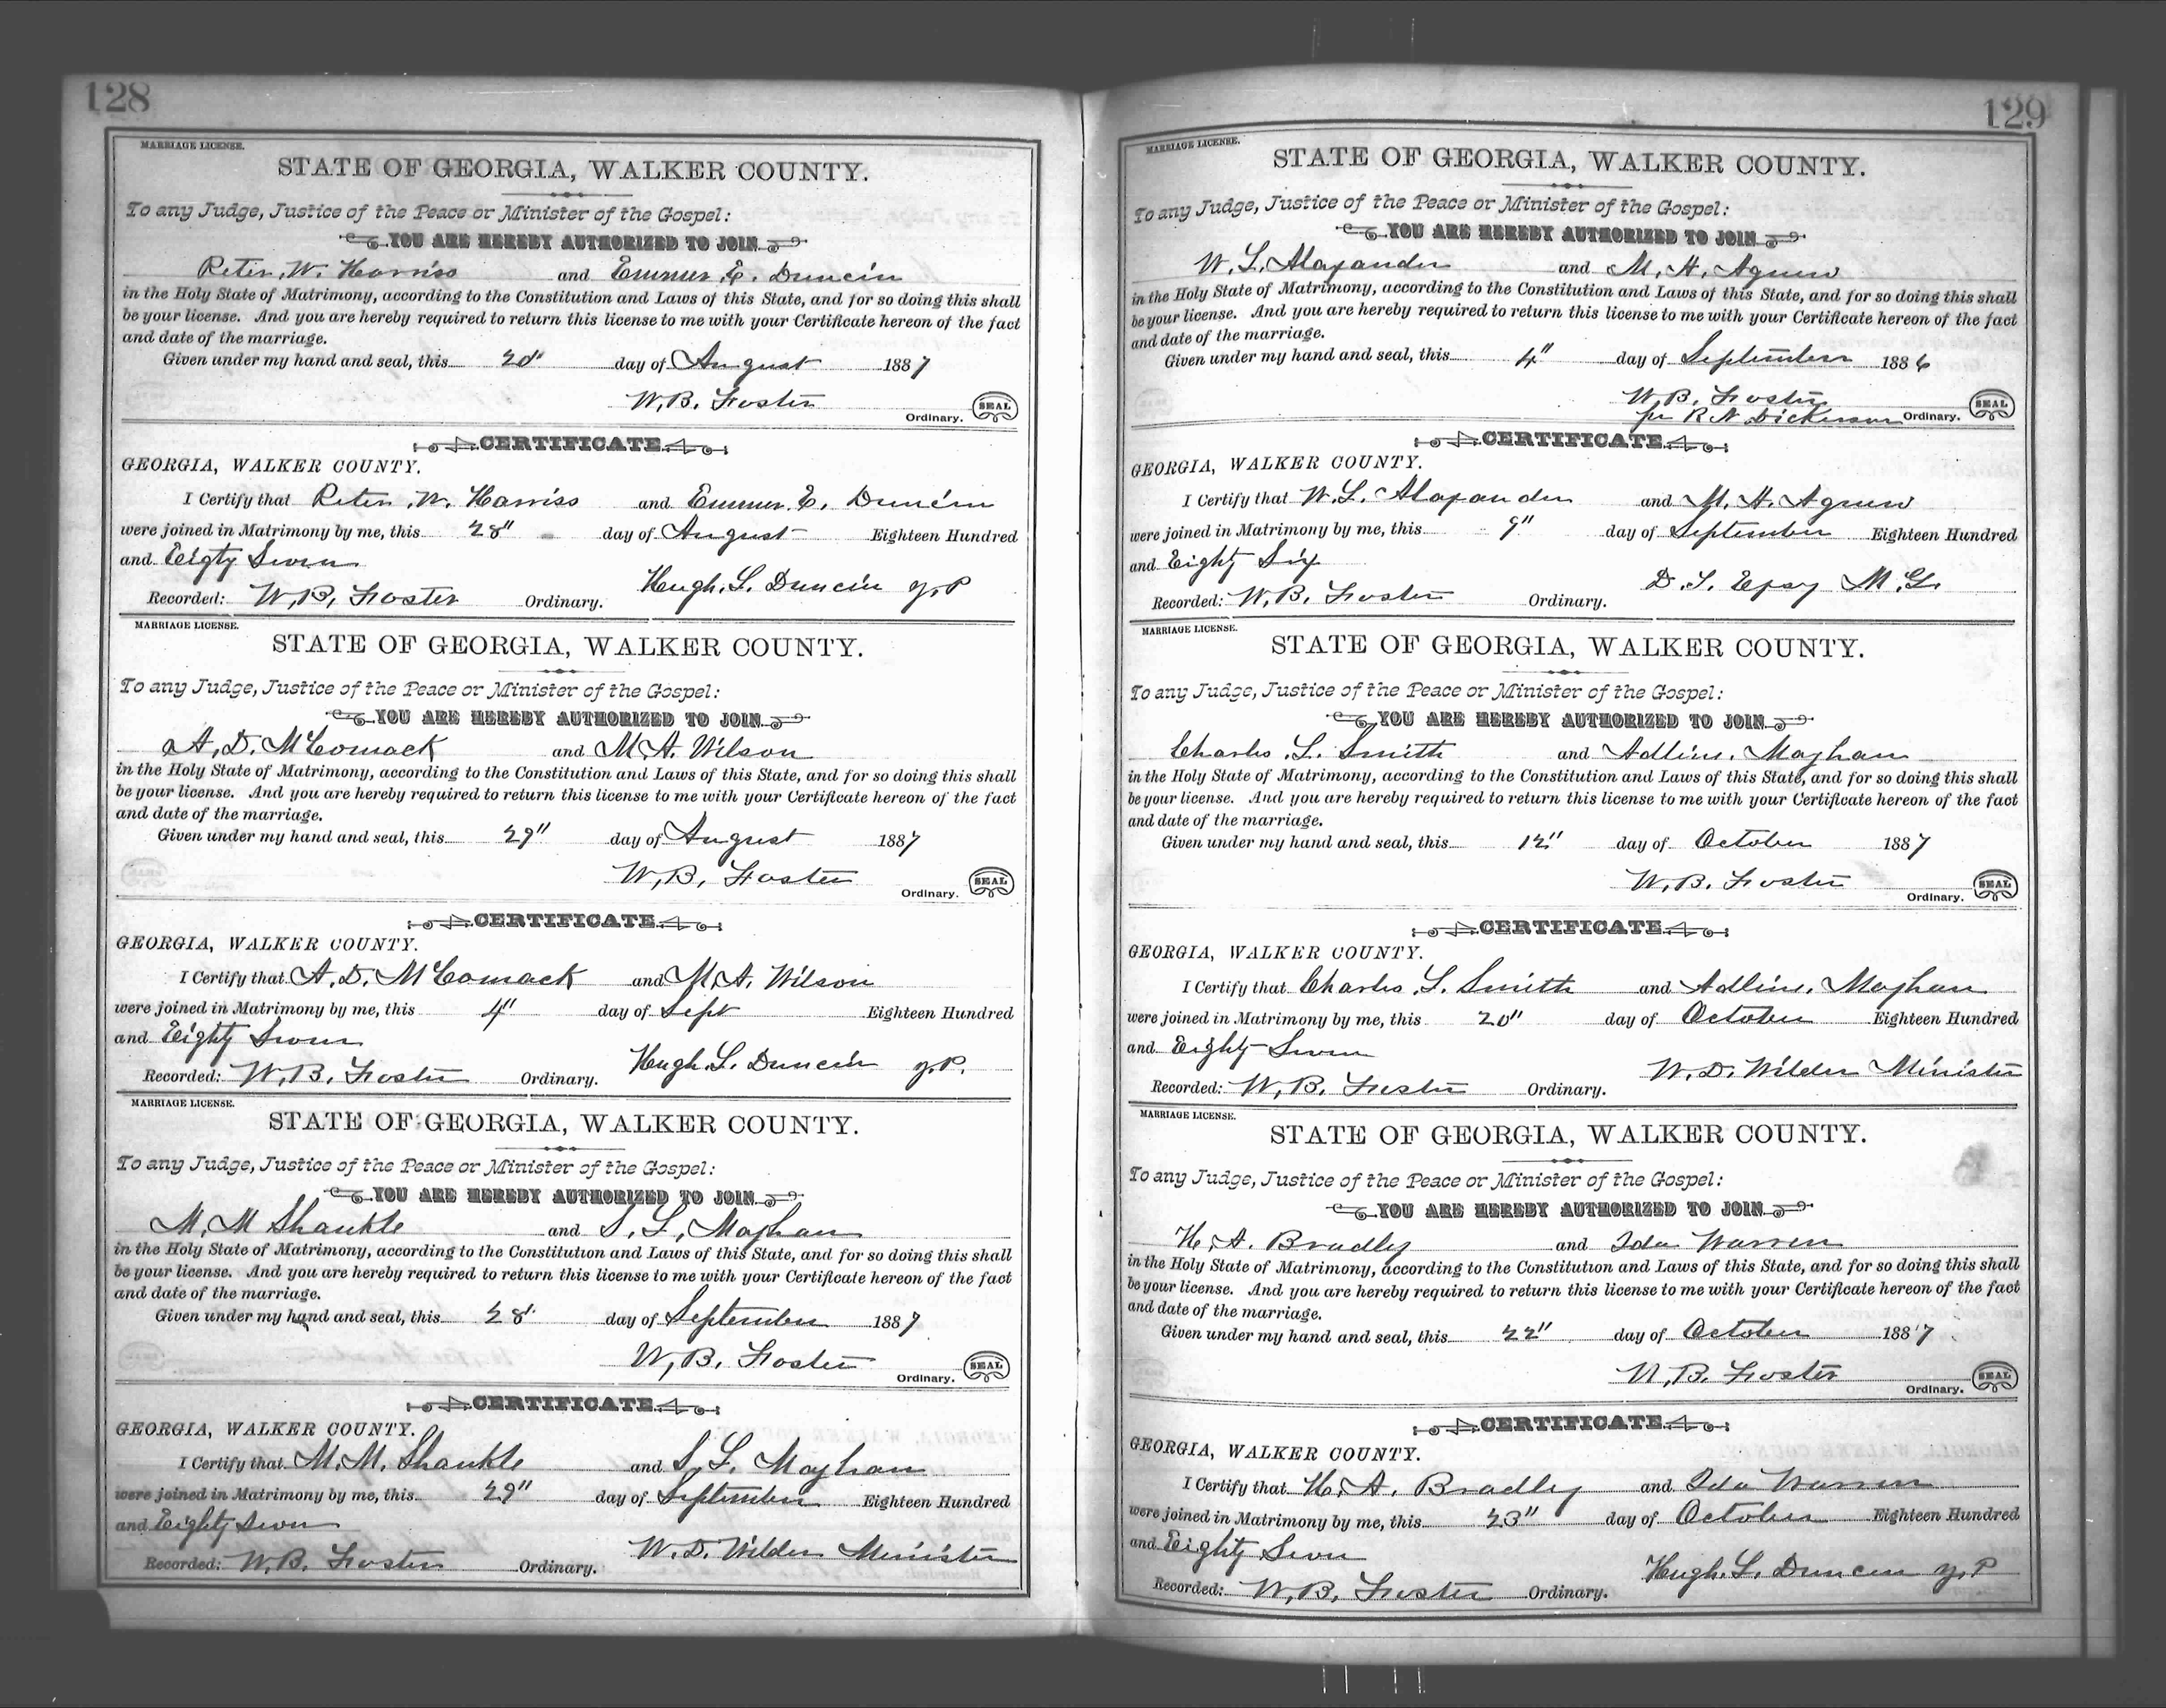 128
MARRIAGE LICENSE.
STATE OF GEORGIA, WALKER COUNTY.
To any Judge, Justice of the Peace or Minister of the Gospel:
YOU ARE HEREBY AUTHORIZED TO JOIN
Peter W. Harriss and Emmer E. Duncin
in the Holy State of Matrimony, according to the Constitution and Laws of this State, and for so doing this shall
be your license. And you are hereby required to return this license to me with your Certificate hereon of the fact
and date of the marriage.
Given under my hand and seal, this 20" day of August 1887
W. B. Foster
Ordinary. SEAL
CERTIFICATE
GEORGIA, WALKER COUNTY.
I Certify that Peter W. Harriss and Emmer E. Duncin
were joined in Matrimony by me, this 28" day of August Eighteen Hundred
and Eigty Seven
Hugh L. Duncin J.P
Recorded: W. B. Foster Ordinary.
MARRIAGE LICENSE.
STATE OF GEORGIA, WALKER COUNTY.
To any Judge, Justice of the Peace or Minister of the Gospel:
YOU ARE HEREBY AUTHORIZED TO JOIN
A. D. McComack and M. A. Wilson
in the Holy State of Matrimony, according to the Constitution and Laws of this State, and for so doing this shall
be your license. And you are hereby required to return this license to me with your Certificate hereon of the fact
and date of the marriage.
Given under my hand and seal, this 29" day of August 1887
W. B. Foster
Ordinary. SEAL
CERTIFICATE
GEORGIA, WALKER COUNTY.
I Certify that A. D. McComack and M. A. Wilson
were joined in Matrimony by me, this 4" day of Sept Eighteen Hundred
and Eighty Seven
Hugh L. Duncin J.P.
Recorded: W. B. Foster Ordinary.
MARRIAGE LICENSE.
STATE OF GEORGIA, WALKER COUNTY.
To any Judge, Justice of the Peace or Minister of the Gospel:
YOU ARE HEREBY AUTHORIZED TO JOIN
M. M Shankle and S. L. Maghan
in the Holy State of Matrimony, according to the Constitution and Laws of this State, and for so doing this shall
be your license. And you are hereby required to return this license to me with your Certificate hereon of the fact
and date of the marriage.
Given under my hand and seal, this 28" day of September 1887
W. B. Foster
Ordinary. SEAL
CERTIFICATE
GEORGIA, WALKER COUNTY.
I Certify that M. M. Shankle and S. L. Maghan
were joined in Matrimony by me, this 29" day of September Eighteen Hundred
and Eighty Seven
W. D. Wilder Minister
Recorded: W. B. Foster Ordinary.
129
MARRIAGE LICENSE.
STATE OF GEORGIA, WALKER COUNTY.
To any Judge, Justice of the Peace or Minister of the Gospel:
YOU ARE HEREBY AUTHORIZED TO JOIN
W. L. Alaxander and M. H. Agnew
in the Holy State of Matrimony, according to the Constitution and Laws of this State, and for so doing this shall
be your license. And you are hereby required to return this license to me with your Certificate hereon of the fact
and date of the marriage.
Given under my hand and seal, this 4" day of September 1886
W. B. Foster
per R. N. Dickerson Ordinary. SEAL
CERTIFICATE
GEORGIA, WALKER COUNTY.
I Certify that W. L. Alaxander and M. H. Agnew
were joined in Matrimony by me, this 9" day of September Eighteen Hundred
and Eighty Six
D. S. Epsy M.G.
Recorded: W. B. Foster Ordinary.
MARRIAGE LICENSE.
STATE OF GEORGIA, WALKER COUNTY.
To any Judge, Justice of the Peace or Minister of the Gospel:
YOU ARE HEREBY AUTHORIZED TO JOIN
Charles L. Smith and Adline Maghan
in the Holy State of Matrimony, according to the Constitution and Laws of this State, and for so doing this shall
be your license. And you are hereby required to return this license to me with your Certificate hereon of the fact
and date of the marriage.
Given under my hand and seal, this 12" day of October 1887
W. B. Foster
Ordinary. SEAL
CERTIFICATE
GEORGIA, WALKER COUNTY.
I Certify that Charles L. Smith and Adline Maghan
were joined in Matrimony by me, this 20" day of October Eighteen Hundred
and Eighty Seven
W. D. Wilder Minister
Recorded: W. B. Foster Ordinary.
MARRIAGE LICENSE.
STATE OF GEORGIA, WALKER COUNTY.
To any Judge, Justice of the Peace or Minister of the Gospel:
YOU ARE HEREBY AUTHORIZED TO JOIN
H. A. Bradley and Ida Warren
in the Holy State of Matrimony, according to the Constitution and Laws of this State, and for so doing this shall
be your license. And you are hereby required to return this license to me with your Certificate hereon of the fact
and date of the marriage.
Given under my hand and seal, this 22" day of October 1887
W. B. Foster
Ordinary. SEAL
CERTIFICATE
GEORGIA, WALKER COUNTY.
I Certify that H. A. Bradley and Ida Warren
were joined in Matrimony by me, this 23" day of October Eighteen Hundred
and Eighty Seven
Hugh L. Duncin J.P
Recorded: W. B. Foster Ordinary.